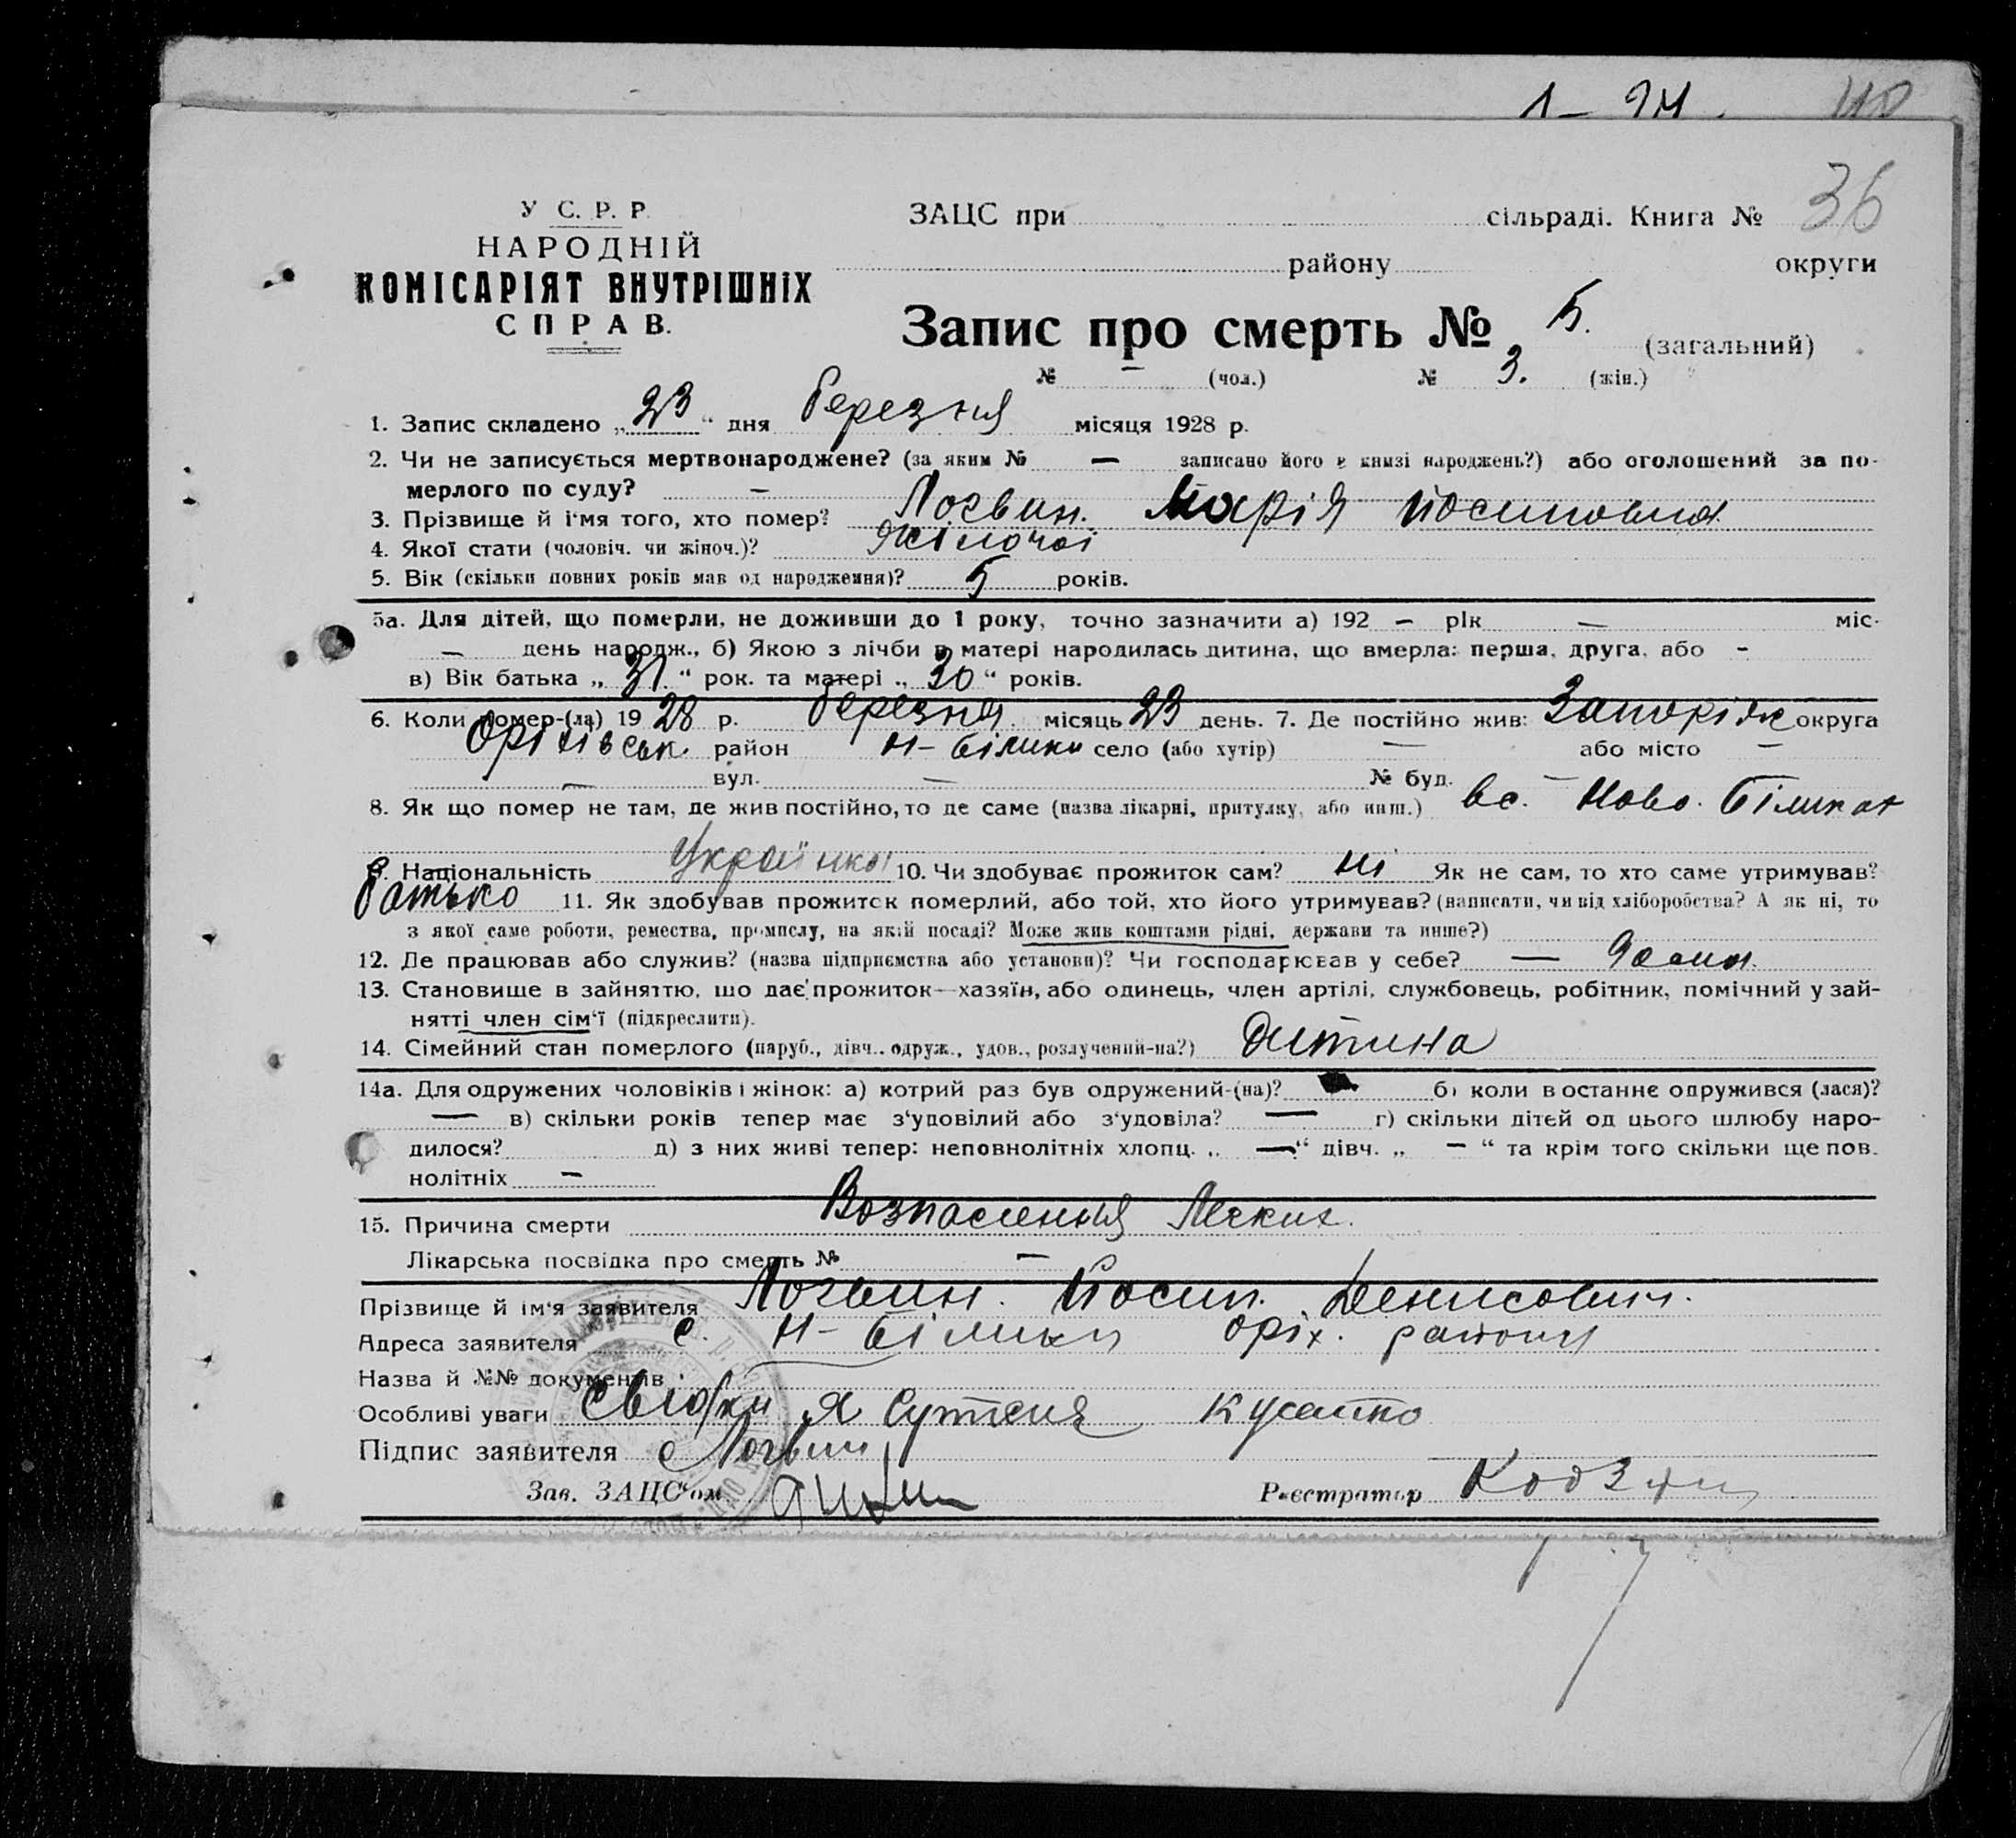 1 – 94. 40
36
У С. Р. Р.
НАРОДНІЙ
КОМІСАРІЯТ ВНУТРІШНІХ
СПРАВ.
ЗАЦС при сільраді. Книга №
району округи
Запис про смерть № 5. (загальний)
№ — (чол.) № 3. (жін.)
1. Запис складено „23“ дня березня місяця 1928 р.
2. Чи не записується мертвонароджене? (за яким № — записано його в книзі народжень?) або оголошений за по-
мерлого по суду? —
3. Прізвище й і'мя того, хто помер? Логвин. Марія Йосиповна.
4. Якої стати (чоловіч. чи жіноч.)? Жіночої
5. Вік (скільки повних років мав од народження)? 5 років.
5а. Для дітей, що померли, не доживши до 1 року, точно зазначити а) 192 – рік — міс.
— день народж., б) Якою з лічби в матері народилась дитина, що вмерла: перша, друга, або -
в) Вік батька „31.“ рок. та матері „30“ років.
6. Коли помер-(ла) 1928 р. березня місяць 23 день. 7. Де постійно жив: Запоріж округа
Оріхівськ. район Н-Білики село (або хутір) — або місто —
— вул. — № буд. —
8. Як що помер не там, де жив постійно, то де саме (назва лікарні, притулку, або инш.) в с. Ново. Біликах
9. Національність Українка 10. Чи здобуває прожиток сам? ні Як не сам, то хто саме утримував?
батько 11. Як здобував прожиток померлий, або той, хто його утримував? (написати, чи від хліборобства? А як ні, то
з якої саме роботи, ремества, промислу, на якій посаді? Може жив коштами рідні, держави та инше?)
12. Де працював або служив? (назва підприємства або установи)? Чи господарював у себе? —
13. Становище в зайняттю, що дає прожиток—хазяїн, або одинець, член артілі, службовець, робітник, помічний у зай-
нятті член сім'ї (підкреслити).
14. Сімейний стан померлого (паруб., дівч., одруж., удов., розлучений-на?) Дитина
14а. Для одружених чоловіків і жінок: а) котрий раз був одружений-(на)? б) коли в останнє одружився (лася)?
— в) скільки років тепер має з'удовілий або з'удовіла? — г) скільки дітей од цього шлюбу наро-
дилося? д) з них живі тепер: неповнолітніх хлопц. „—“ дівч. „ – “ та крім того скільки ще пов.
нолітніх –
15. Причина смерти Вознасіення Легких.
Лікарська посвідка про смерть № —
Прізвище й ім'я заявителя Логвин. Йосип. Денисович.
Адреса заявителя с. Н-Білики Оріх. району
Назва й №№ документів
Особливі уваги свідки
Підпис заявителя Логвин
Зав. ЗАЦС'ом Реєстратор